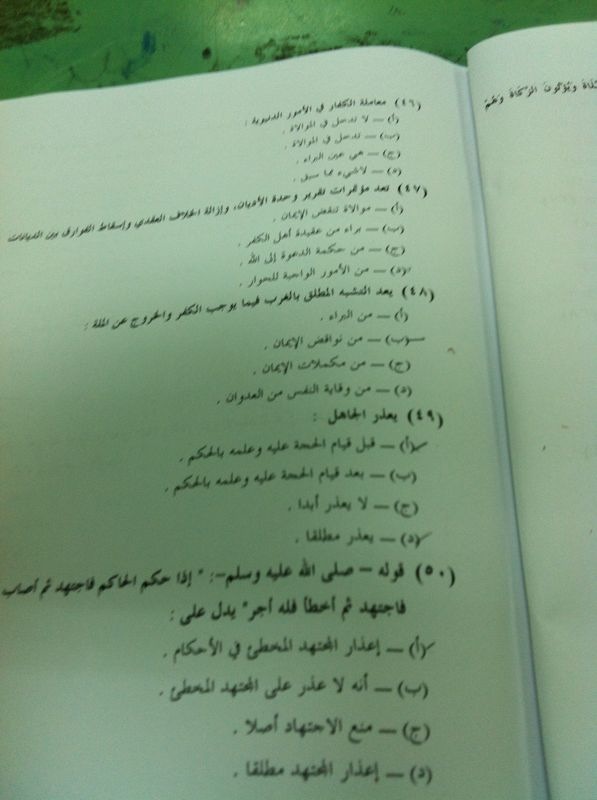 ـلاة ويؤتون الزكاة وهم
(٤٦) معاملة الكفار في الأمور الدنيوية :
(أ) – لا تدخل في الموالاة .
(ب) – تدخل في الموالاة .
(ج) – هي عين البراء .
(د) – لاشيء مما سبق .
(٤٧) تعد مؤتمرات تقرير وحدة الأديان، وإزالة الخلاف العقدي وإسقاط الفوارق بين الديانات
(أ) – موالاة تنقض الإيمان .
(ب) – براء من عقيدة أهل الكفر .
(ج) – من حكمة الدعوة إلى الله .
(د) – من الأمور الواجبة للحوار .
(٤٨) يعد التشبه المطلق بالغرب فيما يوجب الكفر والخروج عن الملة :
(أ) – من البراء .
(ب) – من نواقض الإيمان .
(ج) – من مكملات الإيمان .
(د) – من وقاية النفس من العدوان .
(٤٩) يعذر الجاهل :
(أ) – قبل قيام الحجة عليه وعلمه بالحكم .
(ب) – بعد قيام الحجة عليه وعلمه بالحكم .
(ج) – لا يعذر أبدا .
(د) – يعذر مطلقا .
(٥٠) قوله – صلى الله عليه وسلم –: " إذا حكم الحاكم فاجتهد ثم أصاب
فاجتهد ثم أخطأ فله أجر" يدل على :
(أ) – إعذار المجتهد المخطئ في الأحكام .
(ب) – أنه لا عذر على المجتهد المخطئ .
(ج) – منع الاجتهاد أصلا .
(د) – إعذار المجتهد مطلقا .